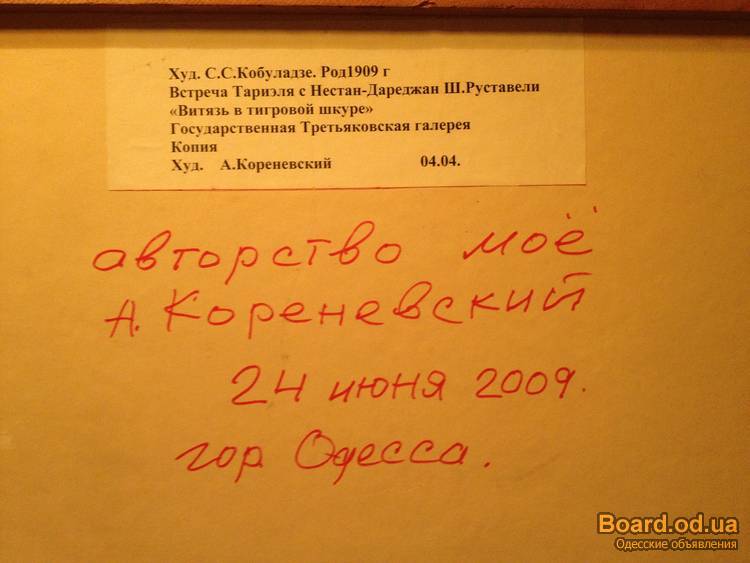 Худ. С.С.Кобуладзе. Род1909 г
Встреча Тариэля с Нестан-Дареджан Ш.Руставели
«Витязь в тигровой шкуре»
Государственная Третьяковская галерея
Копия
Худ. А.Кореневский 04.04.
авторство моё
А. Кореневский
24 июня 2009.
гор. Одесса.
Board.od.ua
Одесские объявления